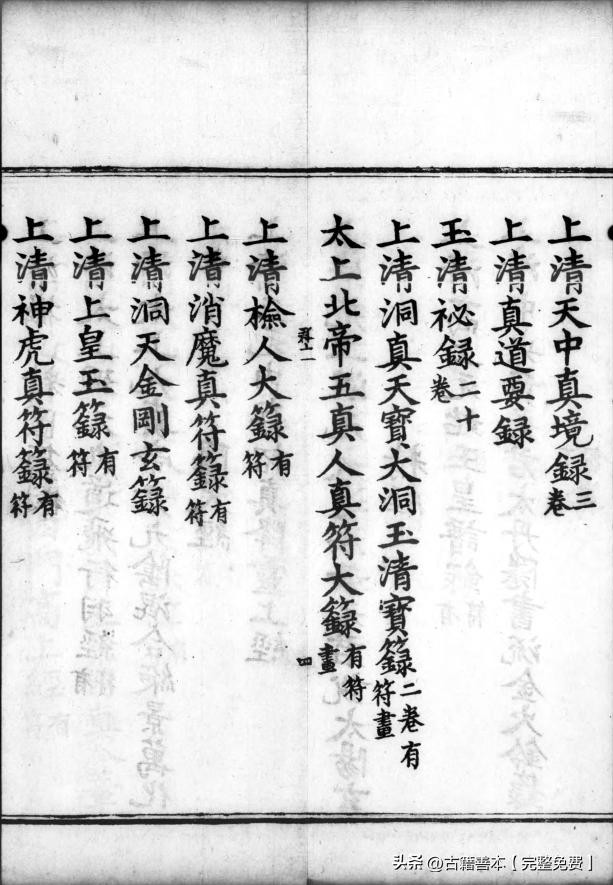 上清天中真境録三卷
上清真道要録
玉清祕録二十卷
上清洞真天寶大洞玉清寶籙二卷有符畫
太上北帝五真人真符大籙有符畫
四
上清檢人大籙有符
上清消魔真符籙有符
上清洞天金剛玄籙
上清上皇玉籙有符
上清神虎真符籙有符
头条 @古籍善本【完整免费】